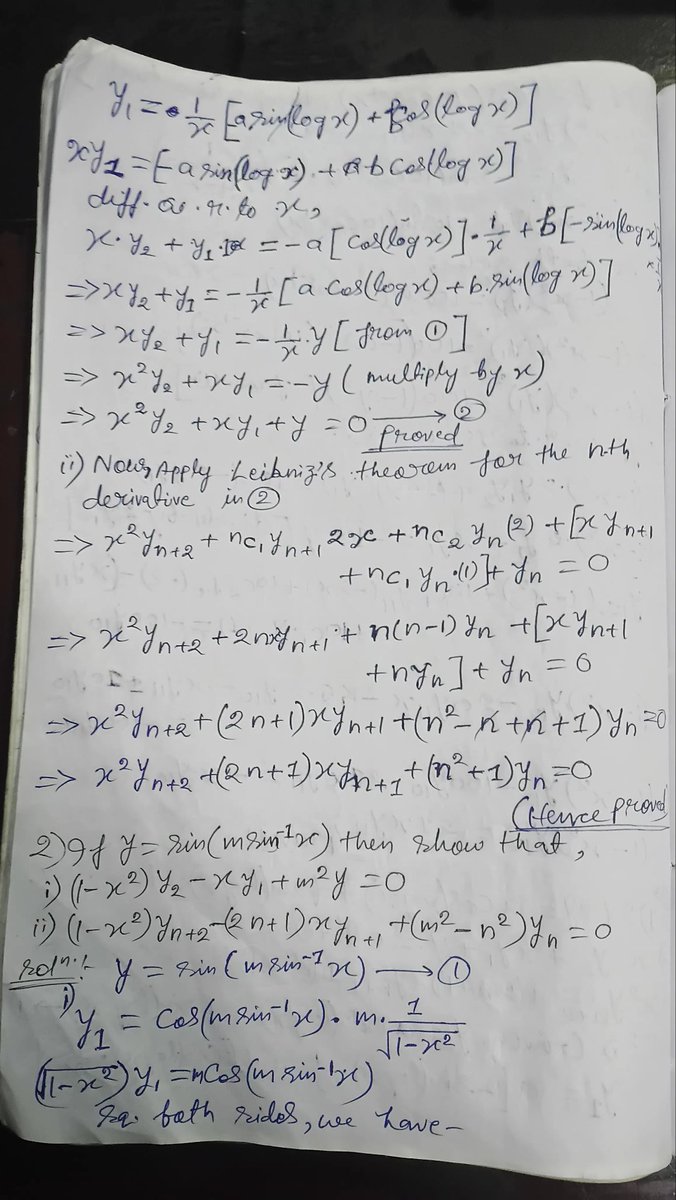 y₁ = 1/x [a sin(log x) + b cos(log x)]
xy₁ = [- a sin(log x) + b cos(log x)]
diff. w. r. to x,
x·y₂ + y₁·1 = -a [cos(log x)]·1/x + b[-sin(log x).
⇒ xy₂ + y₁ = -1/x [a cos(log x) + b.sin(log x)]
⇒ xy₂ + y₁ = -1/x·y [from ①]
⇒ x²y₂ + xy₁ = -y (multiply by x)
⇒ x²y₂ + xy₁ + y = 0 → ②
proved
ii) Now, Apply Leibniz's theorem for the nth
derivative in ②
⇒ x²yₙ₊₂ + nc₁ yₙ₊₁ 2x + nc₂ yₙ (2) + [x yₙ₊₁
+ nc₁ yₙ·(1)] + yₙ = 0
⇒ x²yₙ₊₂ + 2nxyₙ₊₁ + n(n-1) yₙ + [x yₙ₊₁
+ nyₙ] + yₙ = 0
⇒ x²yₙ₊₂ + (2n+1)xyₙ₊₁ + (n² - n + n + 1) yₙ = 0
⇒ x²yₙ₊₂ + (2n+1)xyₙ₊₁ + (n²+1)yₙ = 0
(Hence proved
2) If y = sin(m sin⁻¹x) then show that,
i) (1-x²) y₂ - xy₁ + m²y = 0
ii) (1-x²)yₙ₊₂ - (2n+1)xyₙ₊₁ + (m² - n²)yₙ = 0
solⁿ:- y = sin(m sin⁻¹x) → ①
i) y₁ = cos(m sin⁻¹x)· m· 1/√(1-x²)
(√(1-x²)) y₁ = m cos(m sin⁻¹x)
sq. both sides, we have-